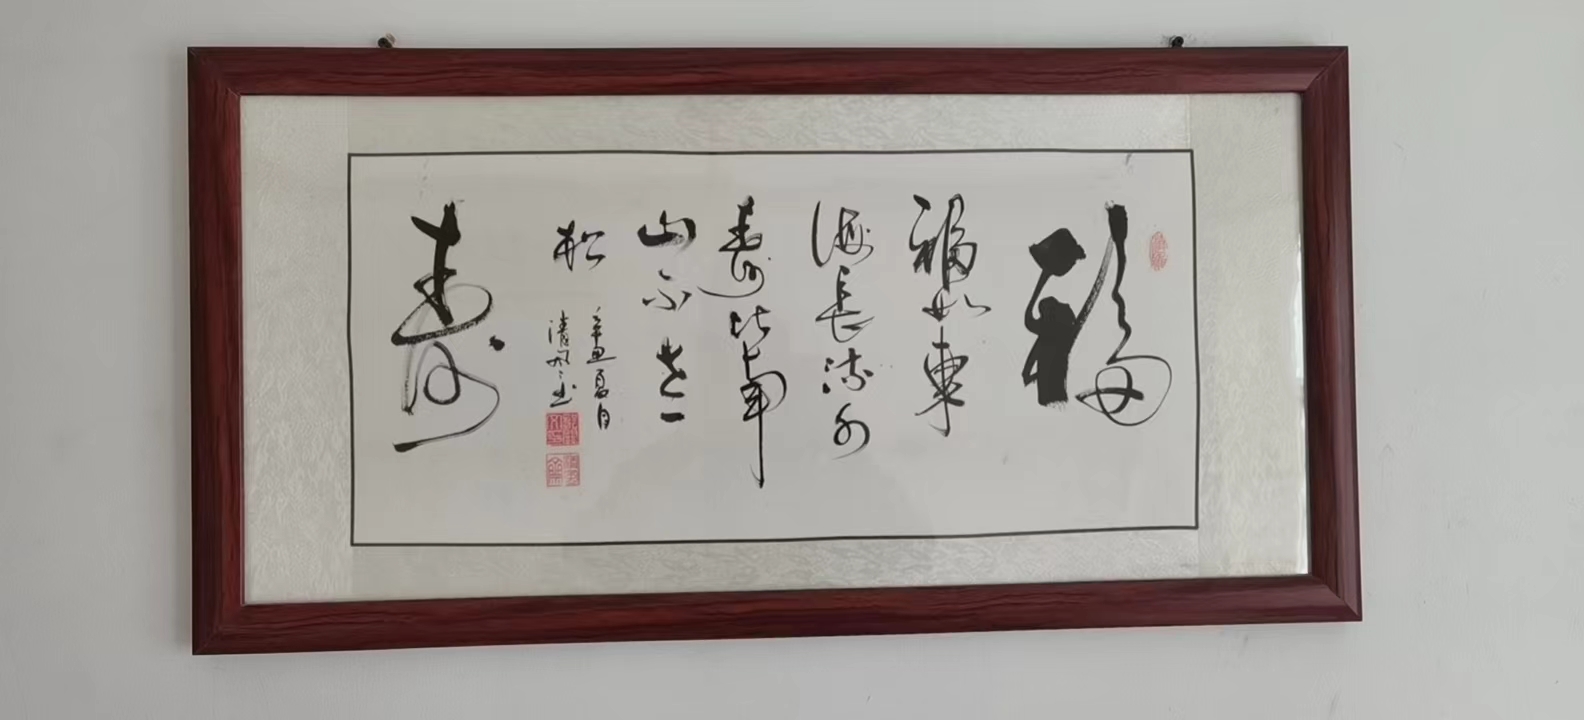 福
福如東
海長流水
寿比南
山不老
松
辛丑夏月
清風
寿